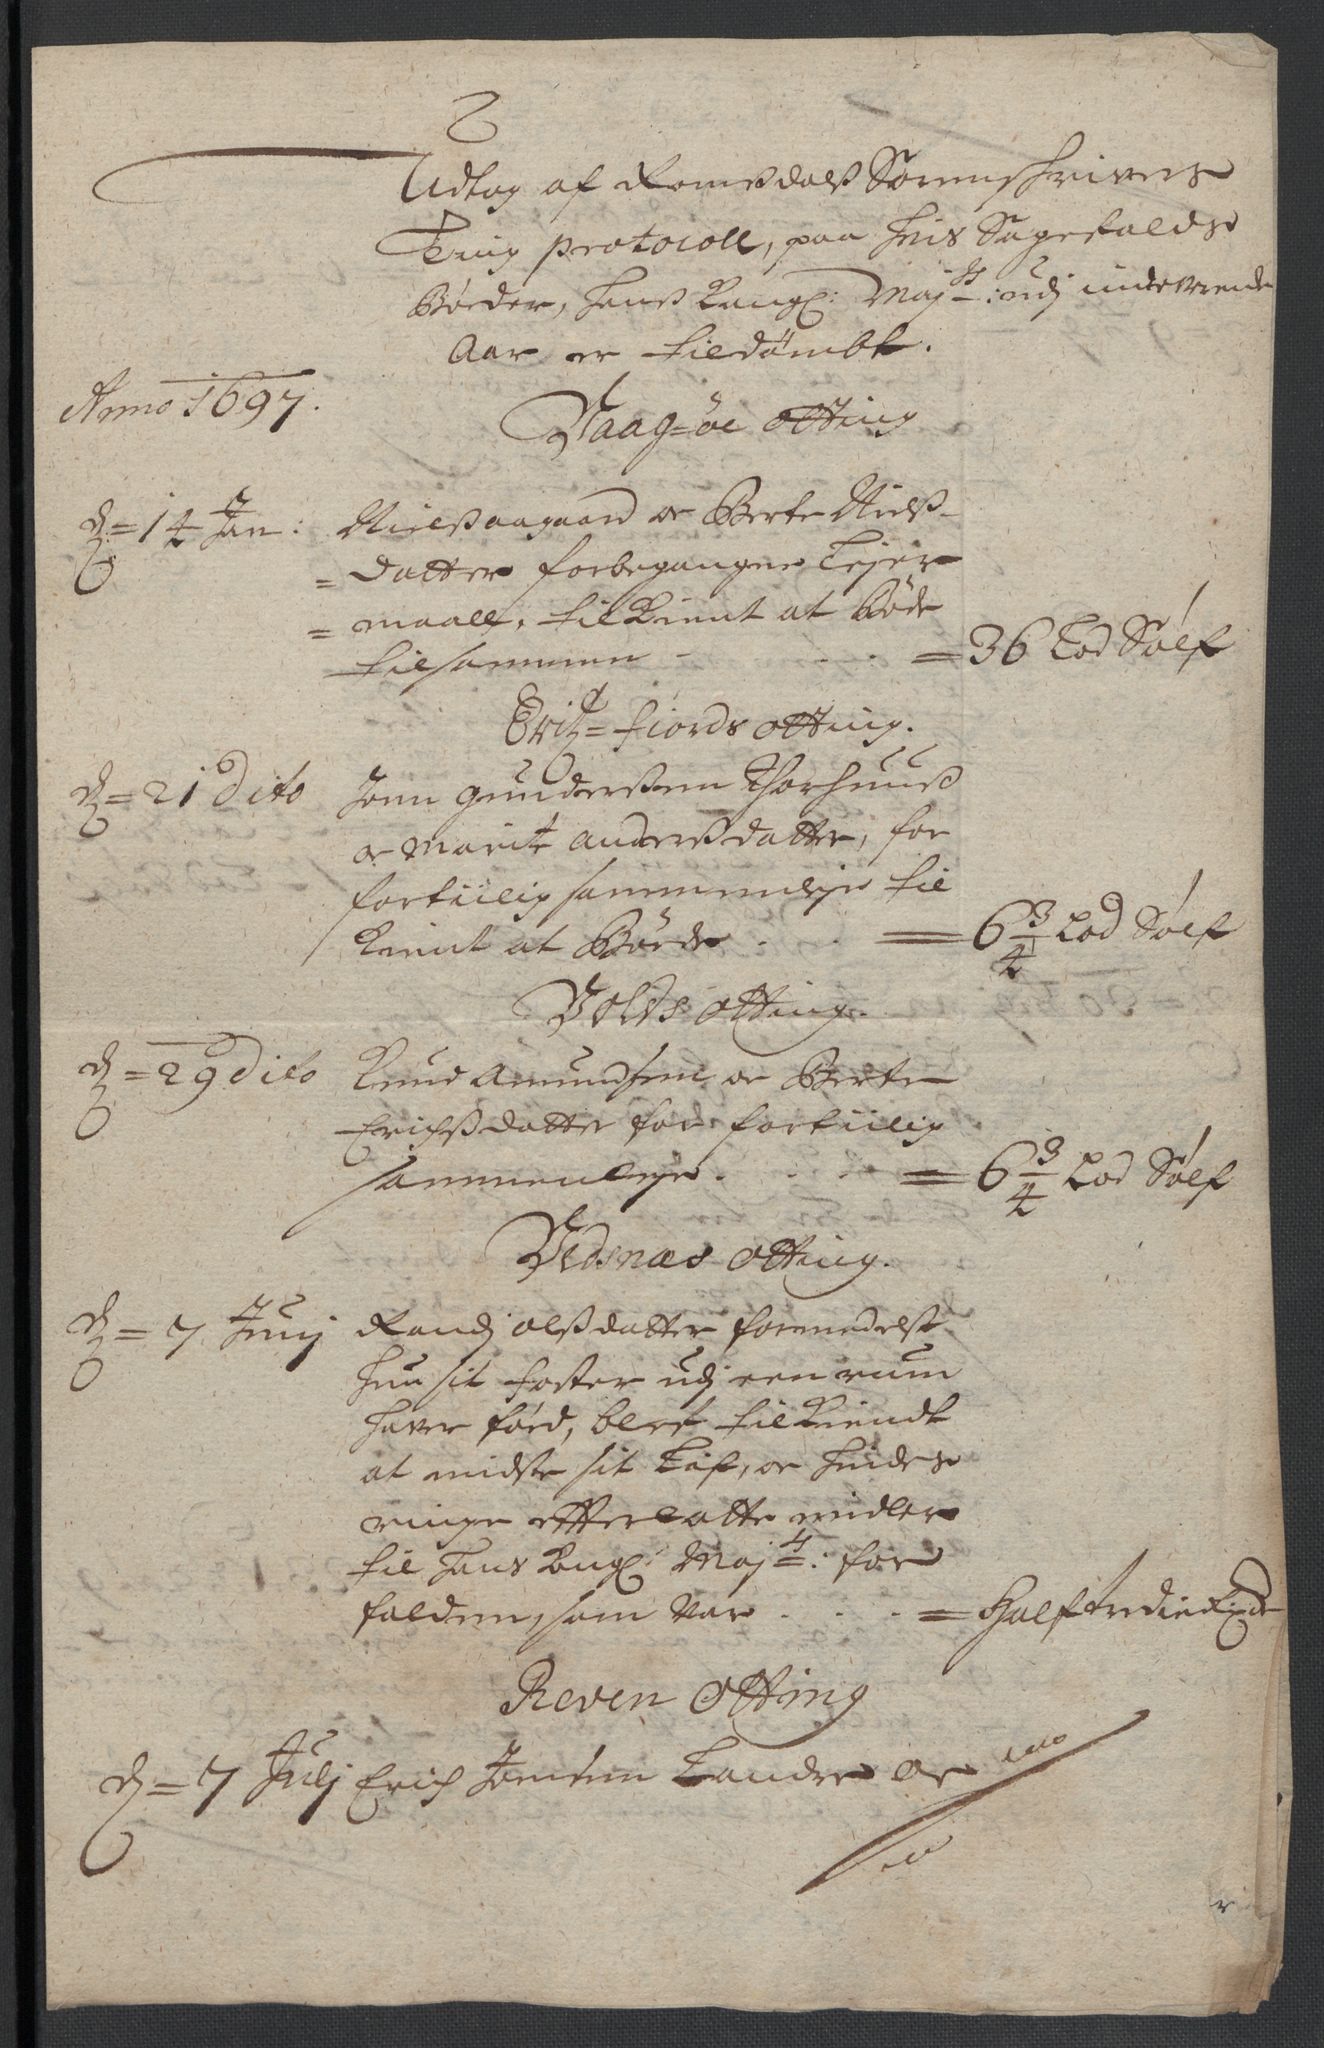 Udtog af Romsdals Sorenschrivers
Ting protocoll, paa hvis Sagefalds
Bøeder, hans Kongl: Maj:ts: udj indeverende
Aar er tildømbt.
Anno 1697.
Vaag-öe otting
D= 14 Jan: Niels aagaard oc Berte Niels
=datter forbegangne Leyer
=maall, tilkient at Böde
tilsammen = 36 Lod Sölf
Eritz=fiords otting.
D= 21 Dito Joen Gunderssen Thorhuus
oc Marite Andersdatter, for
fortiilig sammenleye til
kient at Bøede = 6 3/4 Lod Sölf
Volds otting.
D= 29 Dito Knud Amundsen oc Berte
Erichsdatter for fortiilig
sammenleye = 6 3/4 Lod Sölf
Vedsnæs otting.
D= 7 Junj Randj olsdatter formedelst
hun sit foster udj een ruum
hafver förd, blef tilkiendt
at midste sit Lif, oc hindes
ringe effterlatte midler
til Hans Kngl: Maj:t: for
falden, som var = Half tredie Rixdr
Reven Otting
D= 7 Julj Erich Joensen Landre oc